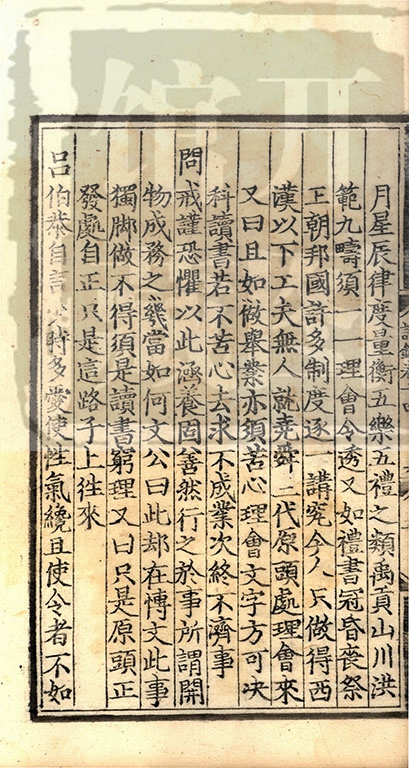 月星辰律度量衡五樂五禮之類禹貢山川洪
範九疇須一一理會令透又如禮書冠昏喪祭
王朝邦國許多制度逐一講究今人只做得西
漢以下工夫無人就堯舜三代原頭處理會來
又曰且如做舉業亦須苦心理會文字方可决
科讀書若不苦心去求不成業次終不濟事
問戒謹恐懼以此涵養固善然行之於事所謂開
物成務之幾當如何文公曰此却在博文此事
獨脚做不得須是讀書窮理又曰只是原頭正
發處自正只是這路子上徃來
呂伯恭自言少時多愛使性氣纔且使令者不如